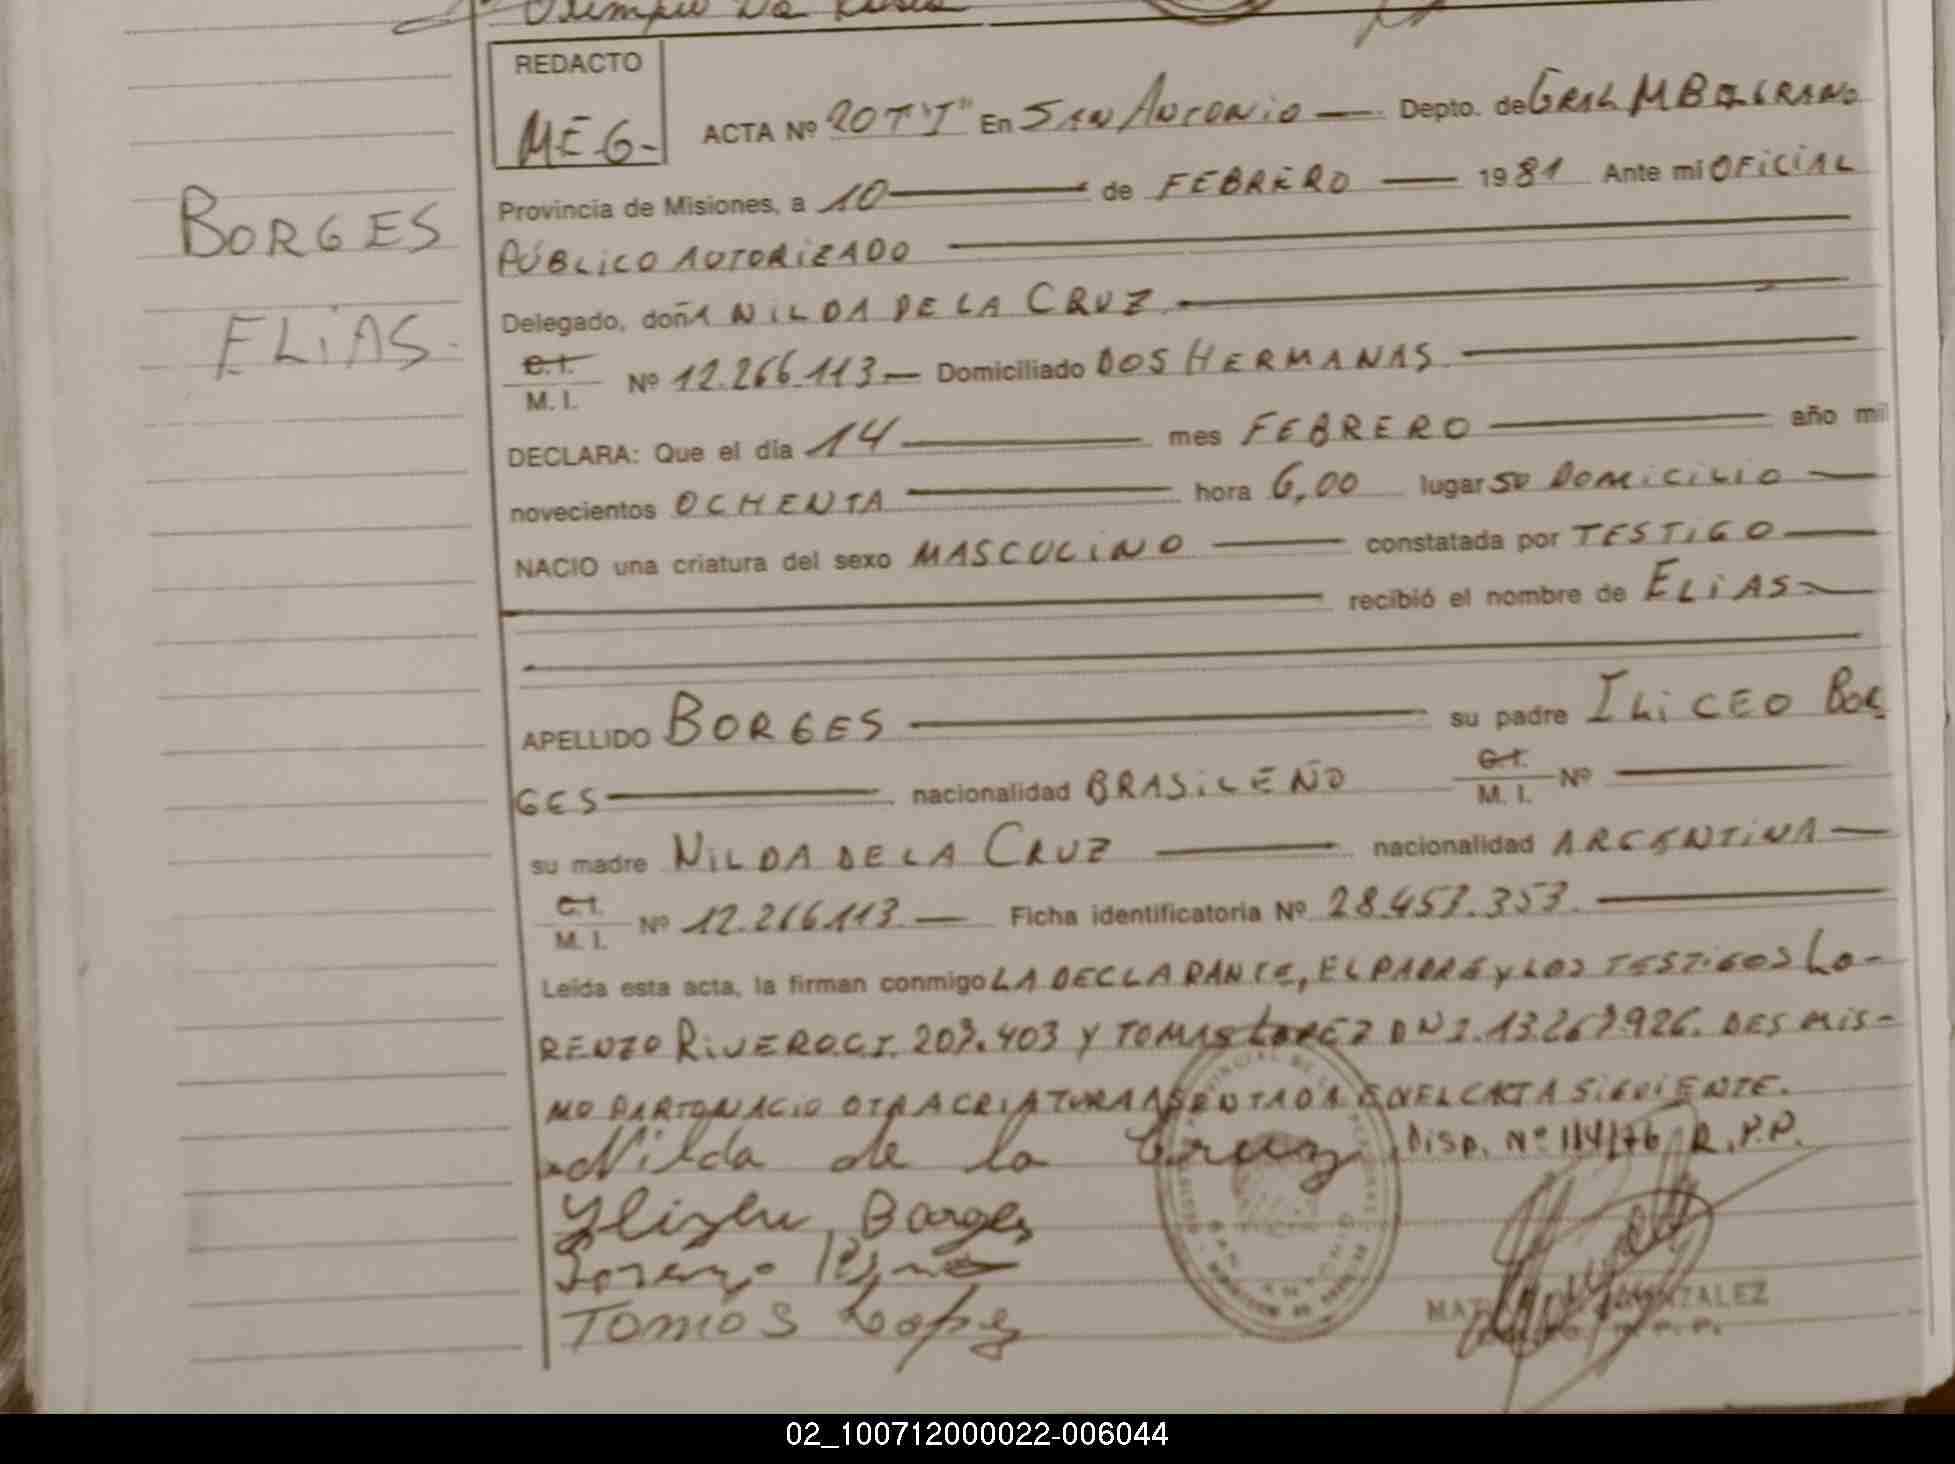 Olimpio Da
REDACTO
MEG-
ACTA Nº 20 T "I" En SAN ANTONIO — Depto. de GRAL M BELGRANO
Provincia de Misiones, a 10 — de FEBRERO — 1981 Ante mi OFICIAL
PÚBLICO AUTORIZADO
BORGES
ELIAS.
Delegado, doñA NILDA DE LA CRUZ
C.I. M. I. Nº 12.266.113 — Domiciliado DOS HERMANAS
DECLARA: Que el día 14 — mes FEBRERO — año mil
novecientos OCHENTA — hora 6,00 lugar SU DOMICILIO —
NACIO una criatura del sexo MASCULINO — constatada por TESTIGO —
recibió el nombre de ELIAS
APELLIDO BORGES — su padre ILICEO BOR
GES — nacionalidad BRASILEÑO C.I. M. I. Nº —
su madre NILDA DE LA CRUZ — nacionalidad ARGENTINA —
C.I. M. I. Nº 12.266.113 — Ficha identificatoria Nº 28.457.353. —
Leída esta acta, la firman conmigo LA DECLARANTE, EL PADRE y LOS TESTIGOS LO-
RENZO RIVERO C.I. 207.403 Y TOMAS LOPEZ DNI. 13.267.926. DEL MIS-
MO PARTO NACIO OTRA CRIATURA ASENTADA EN EL ACTA SIGUIENTE.
Nilda de la Cruz Disp. Nº 114/76 R.P.P.
Borges
Lorenzo
Tomás Lopez
GONZALEZ
02_100712000022-006044